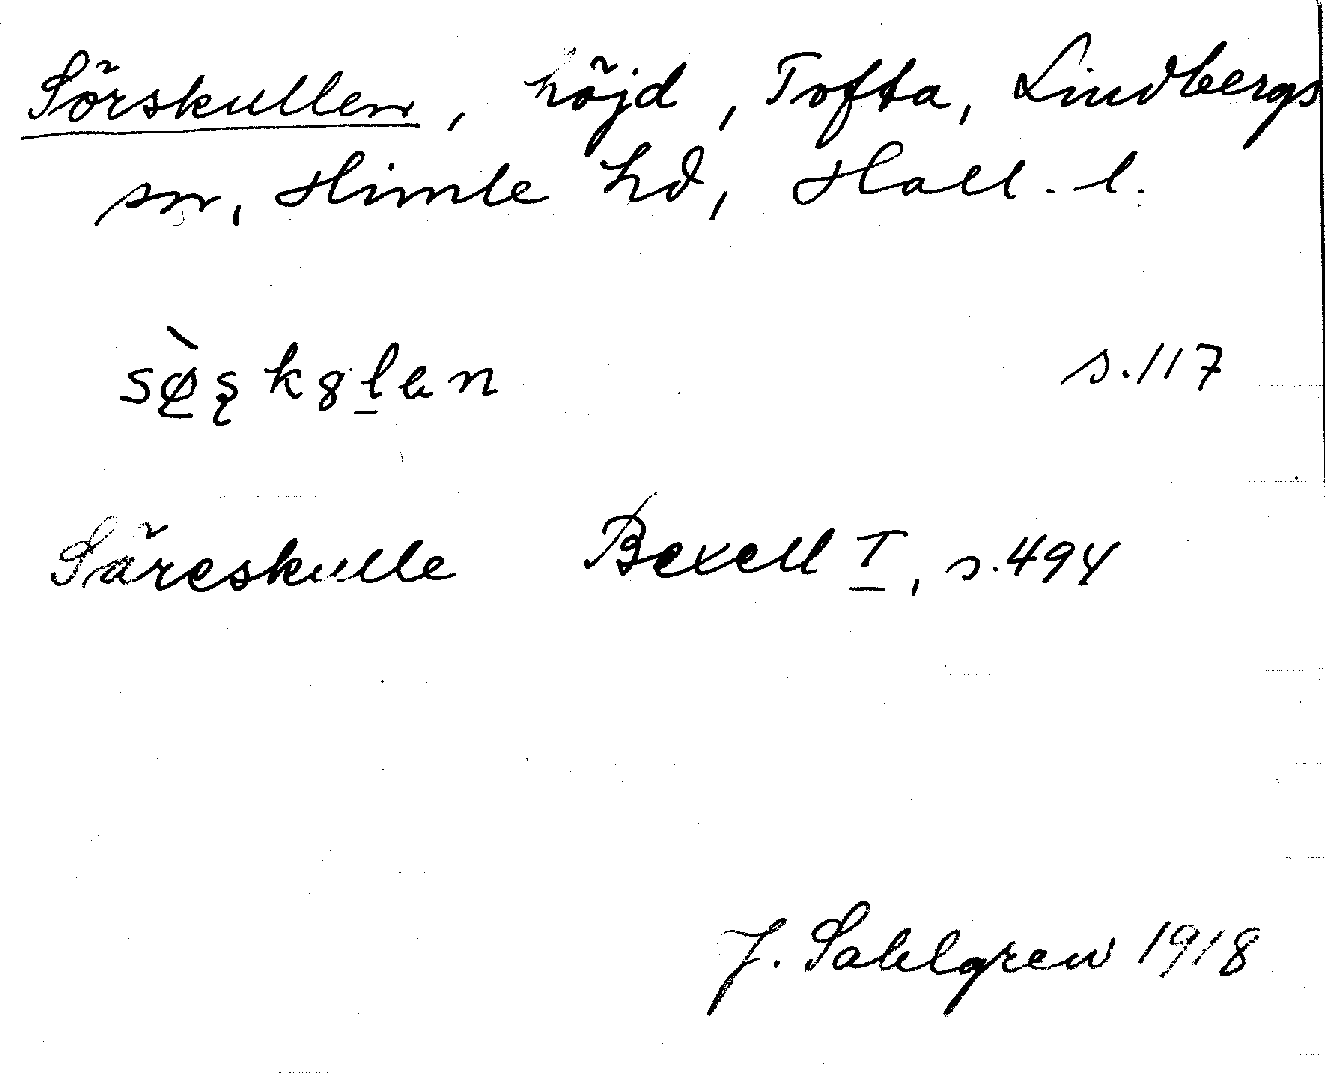 Sörskullen, höjd, Tofta, Lindbergs
sn, Himle hd, Hall. l.
s.117
Säreskulle Bexell I, s.494
J. Sahlgren 1918